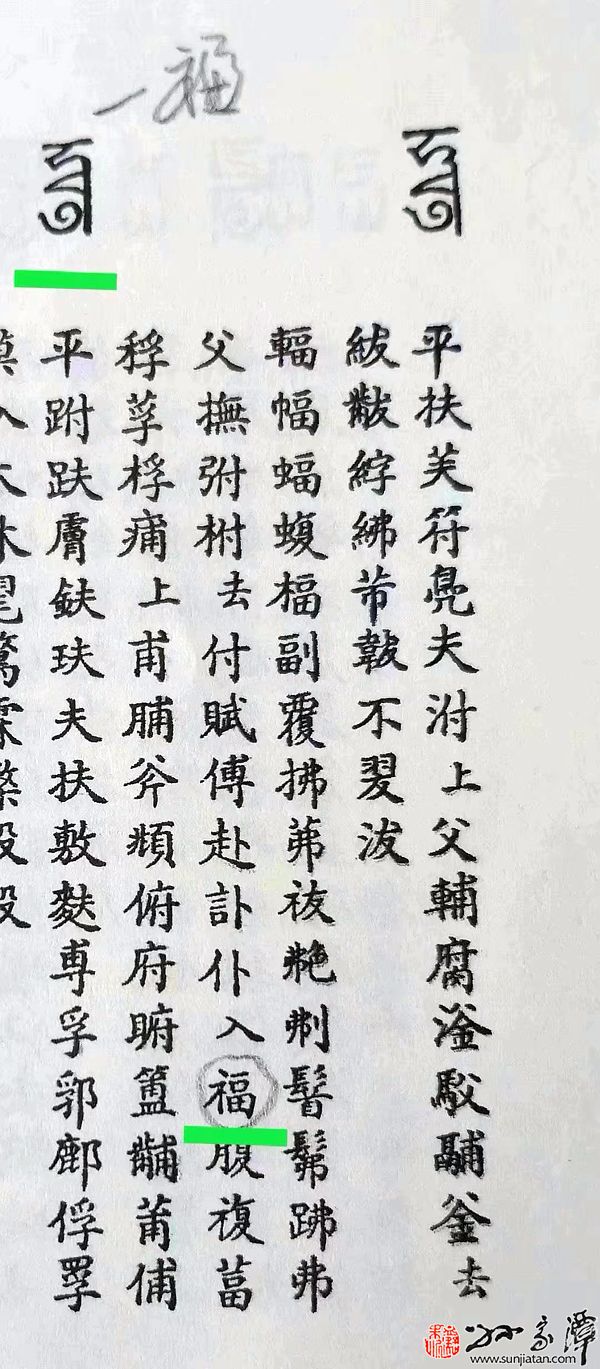 一福
平跗趺膚鈇玞夫扶敷麩尃孚郛鄜俘罦
稃莩桴痡上甫脯斧頫俯府腑簠黼莆俌
父撫弣柎去付賦傅赴訃仆入福腹複葍
輻幅蝠蝮楅副覆拂茀祓艴刜髴弗
紱黻綍紼芾韍不翇沷
平扶芙符鳧夫泭上父輔腐滏釜去
孙家潭
www.sunjiatan.com